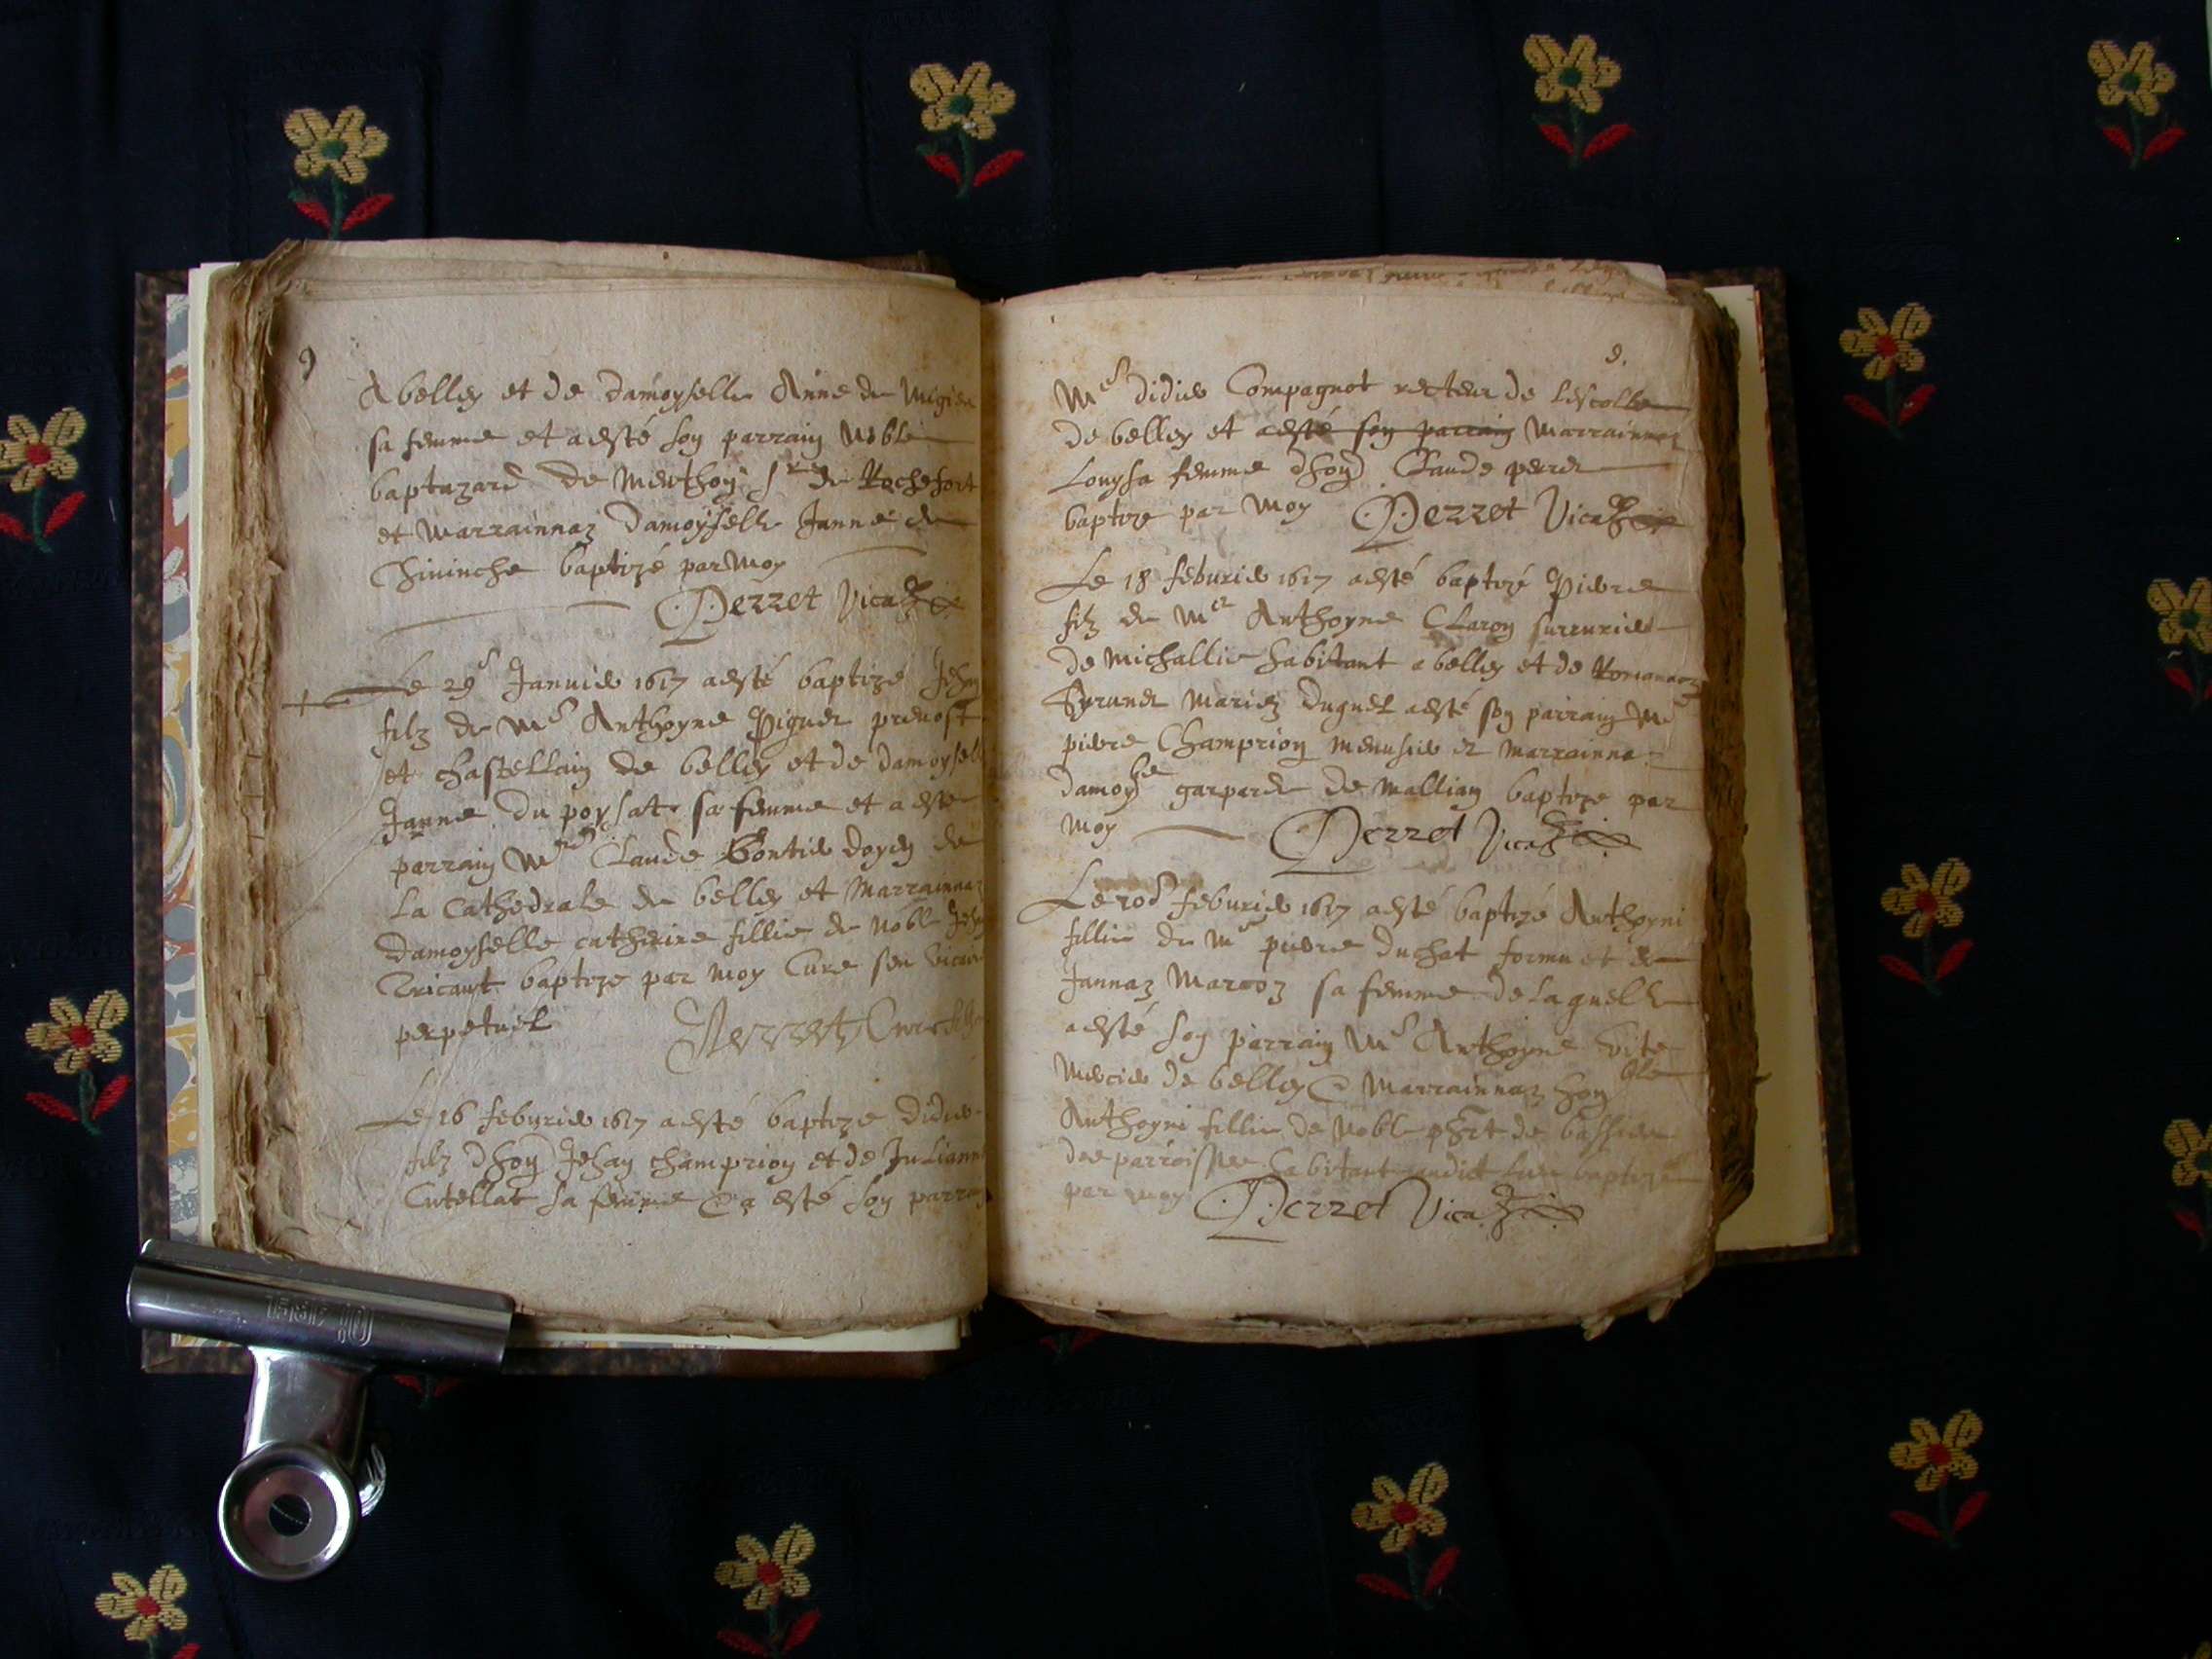 9
A belley et de damoyselle Anne de Migieu
sa femme et a esté son parrain Noble
baptazard de Merthoy Sr de Rochefort
et Marrainnaz damoyselle Janne de
Chininche baptizé par Moy
Perret Vicaire
Le 29e Januier 1617 a esté baptizé Jehan
filz de Me Anthoyne Piguet preuost
et chastellain de belley et de damoyselle
Janne du poysat sa femme et a este
parrain Claude doyen de
La Cathedrale de belley et Marrainnaz
damoyselle catherine fillie de Noble Jehan
Tricaut baptize par moy Cure seu Vicaire
perpetuel Perret
Le 16 feburier 1617 a esté baptize didier
filz dhon Jehan champrion et de Julianne
Cutellat sa femme & a esté son parrain
9.
Me didier Compagnot recteur de Lescolle
de belley et a esté son parrain Marrainnaz
Louysa femme dhon Claude perret
baptize par Moy Perret Vicaire
Le 18 feburier 1617 a esté baptizé Pierre
filz de Me Anthoyne Claron surrurier
de Michallie habitant a belley et de Romannaz
mariez a esté son parrain Me
pierre Champrion menusier et marrainne
damoylle gasparde de Mallian baptize par
Moy Perret Vicaire
Le 20e feburier 1617 a esté baptizé Anthoyni
fillie de Me pierre duchat et de
Jannaz Marcoz sa femme de Laquelle
a esté son parrain Me Anthoyne Vite
Mercier de belley & Marrainnaz hon ble
Anthoyni fillie de Noble de
parroisse habitant audict Lieu baptizé
par moy Perret Vicaire